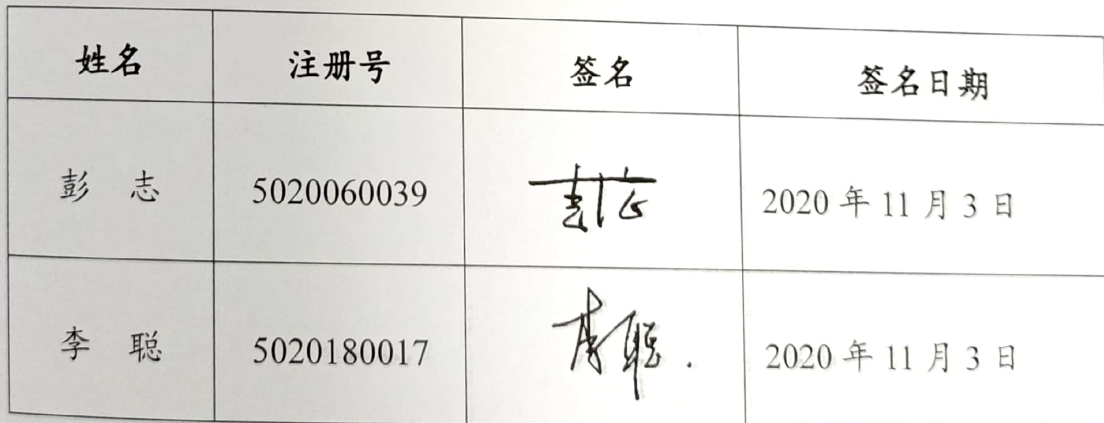 姓名 注册号 签名 签名日期
彭 志 5020060039 彭志 2020 年 11 月 3 日
李 聪 5020180017 李聪. 2020 年 11 月 3 日